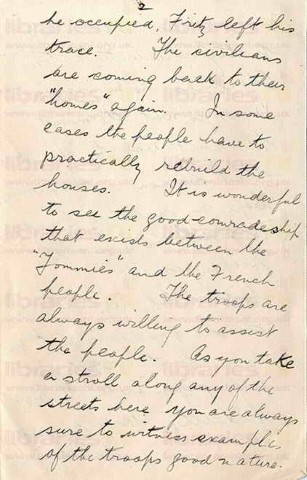 2
he occupied, Fritz left his
trace. The civilians
are coming back to their
"homes" again. In some
cases the people have to
practically rebuild the
houses. It is wonderful
to see the good comradeship
that exists between the
"Tommies" and the French
people. The troops are
always willing to assist
the people. As you take
a stroll along any of the
streets here you are always
sure to witness examples
of the troops good nature.